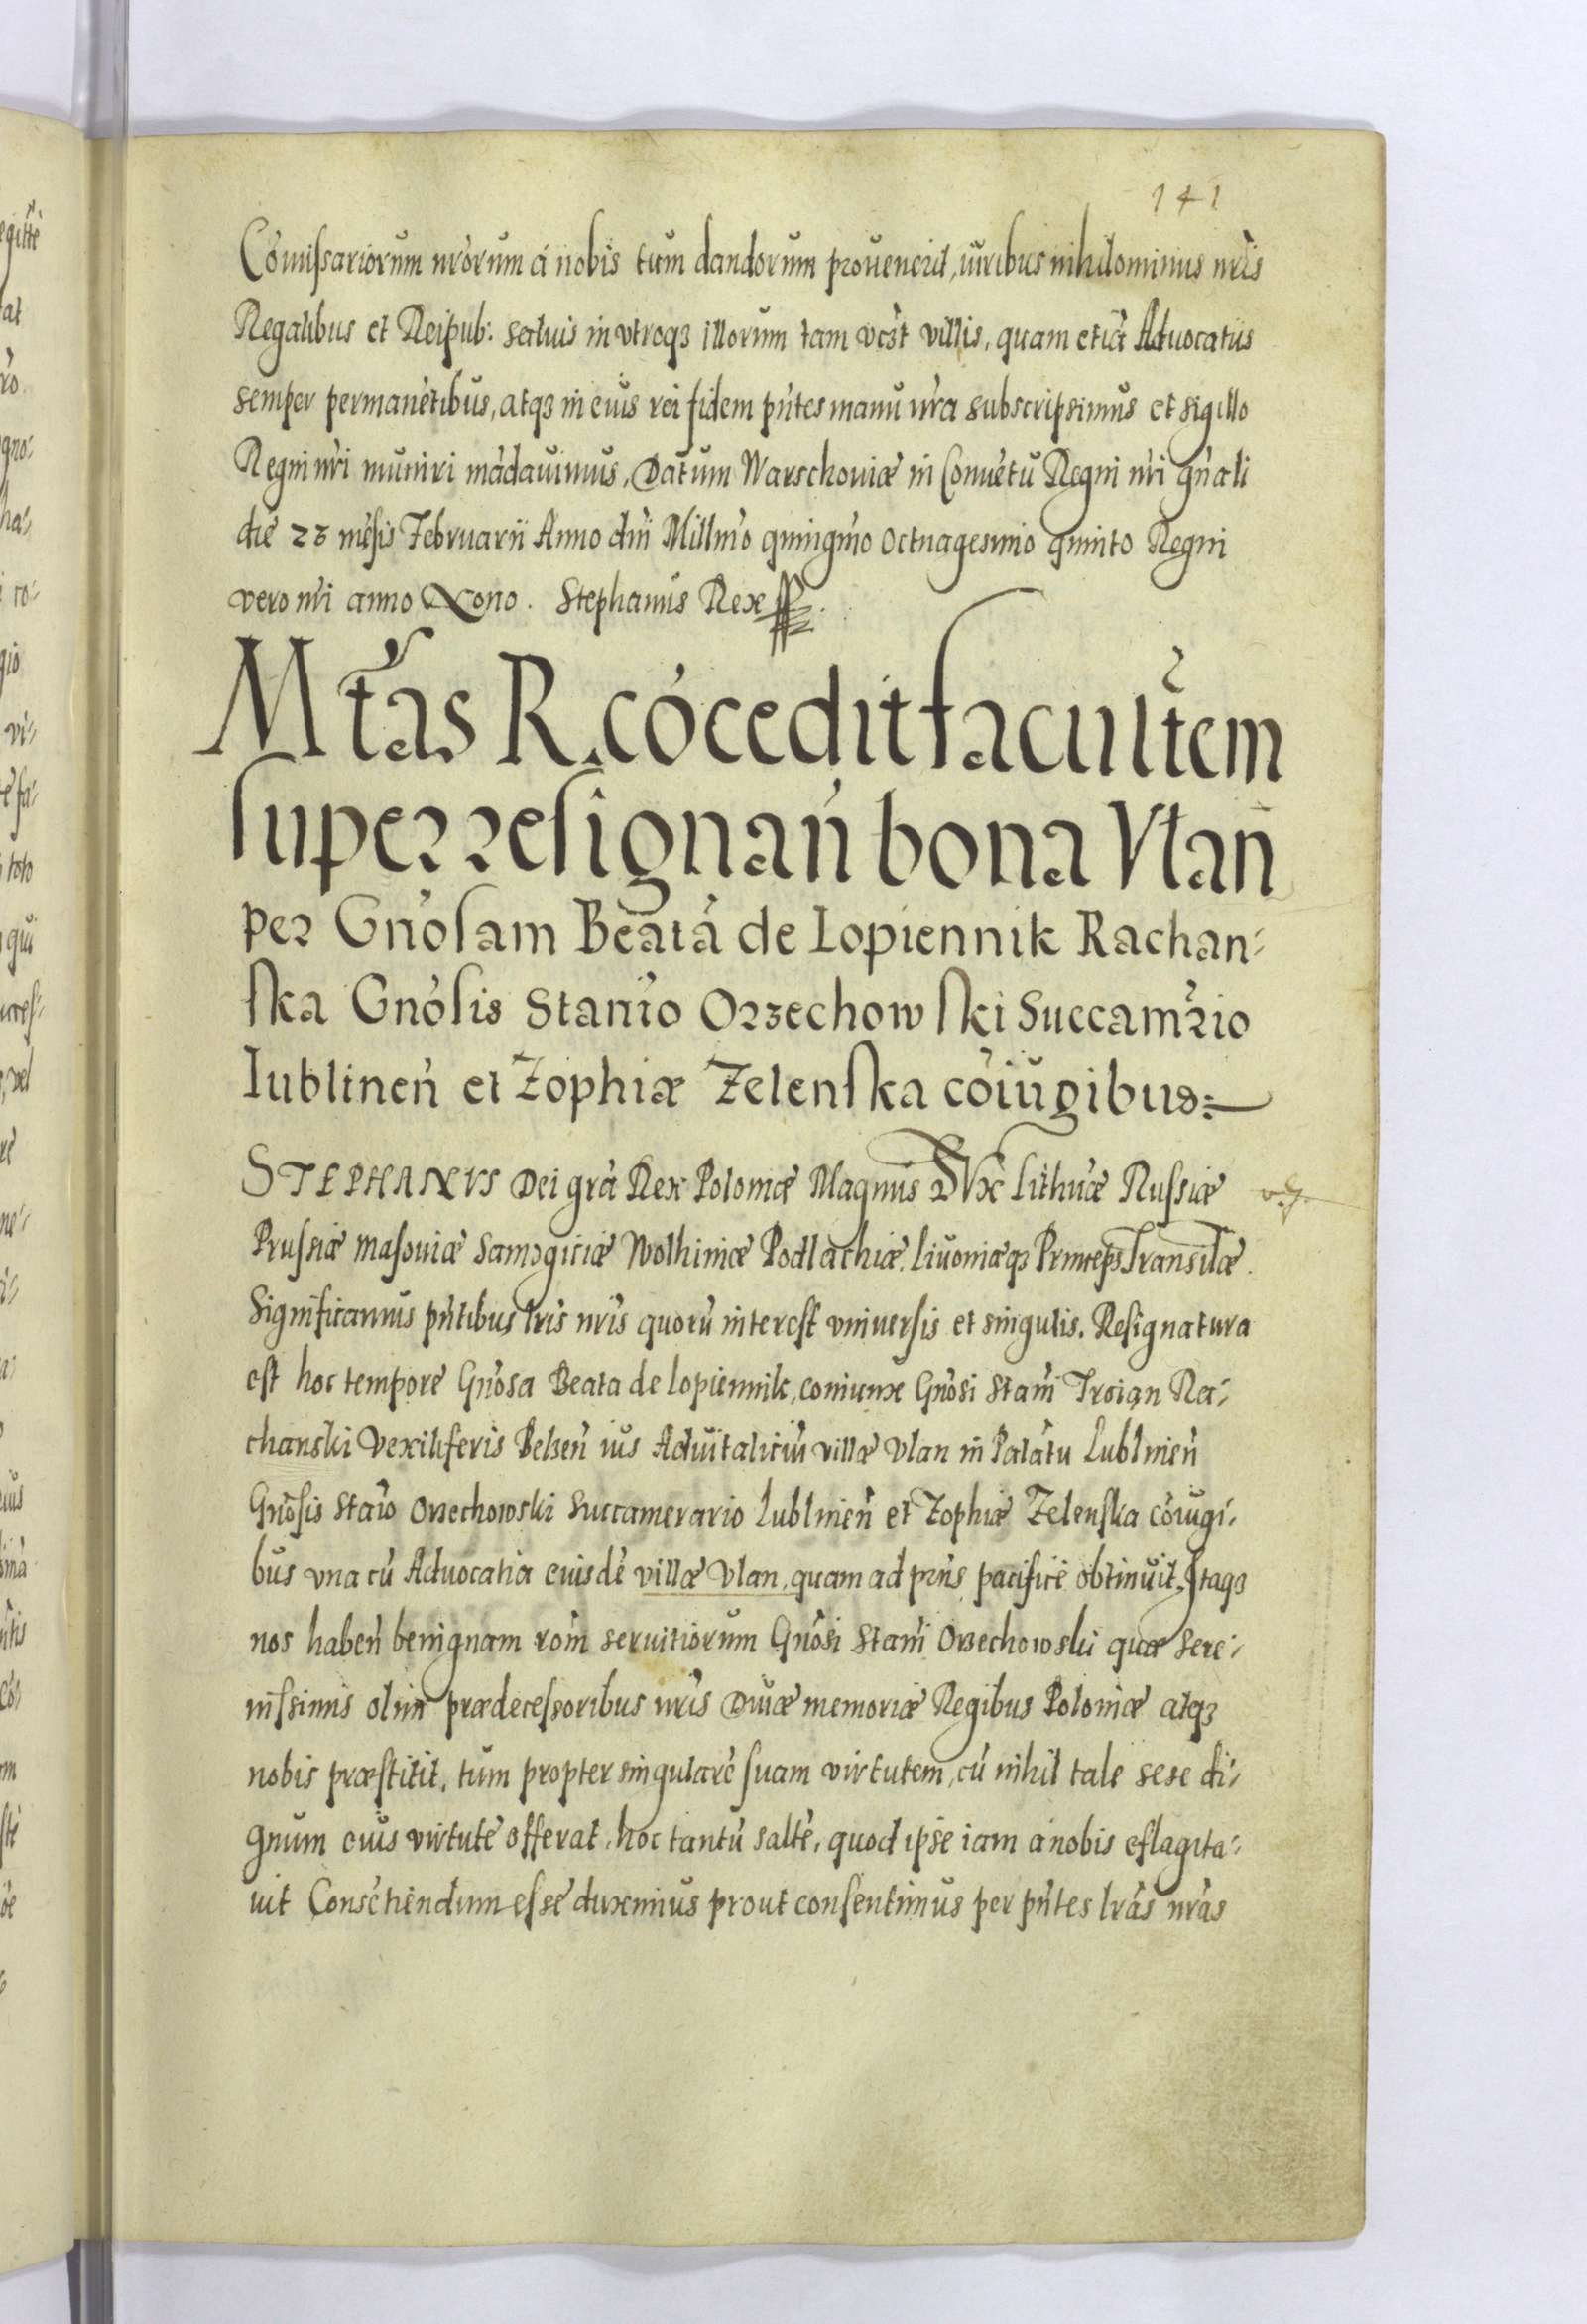 141
Cōmissariorum nrōrum á nobis tum dandorum provenerit, iuribus nihilominus nrīs
Regalibus et Reipub: salvis in vtroqз illorum tam vēst villis, quam etiā Advocatus
semper permanētibus, atqз in eius rei fidem pn̄tes manu nrā subscripsimus et sigillo
Regni nrī muniri mādavimus, Datum Warschoviæ in Convētu Regni nrī gn̄ali
die 23 mēsis Februarii Anno dn̄i Millmō quingmō octuagesimo quinto Regni
vero nrī anno Nono. Stephanus Rex
Mtās R. cōcedit facultēm
super resignan̄ bona Vlan̄
per Gnōsam Beatā de Lopiennik Rachan-
ska Gnōsis Stanīo Orzechowski Succamrīo
Lublinen̄ et Zophiæ Zelenska cōiugibus
STEPHANVS Dei grā Rex Poloniæ Magnus DVx Lithūæ Russiæ
Prussiæ Masoviæ Samogitiæ Wolhiniæ Podlachiæ. Livoniæqз Princeps Transil̄æ.
Significamus pn̄tibus lrīs nrīs quorū interest vniversis et singulis. Resignatura
est hoc tempore Gnōsa Beata de Lopiennik, coniunx Gnōsi Stanī Troian Ra-
chanski Vexiliferis Belzen̄ ius Advitalitiū villæ Vlan in Palātu Lublinen̄
Gnōsis Stanīo Orzechowski Succamerario Lublinen̄ et Zophiæ Zelenska cōiugi-
bus vna cū Advocatia eiusdē villæ Vlan, quam ad prn̄s pacificē obtinuit, Itaqз
nos haben̄ benignam rōm servitiorum Gnōsi Stanī Orzechowski quæ Sere-
nissimis olim prædecessoribus nrīs Divæ memoriæ Regibus Poloniæ atqз
nobis præstitit, tum propter singularē suam virtutem, cū nihil tale sese di-
gnum eius virtute offerat, hoc tantū saltē, quod ipse iam a nobis eflagita-
vit Consētiendum esse duximus prout consentimus per pn̄tes lrās nrās